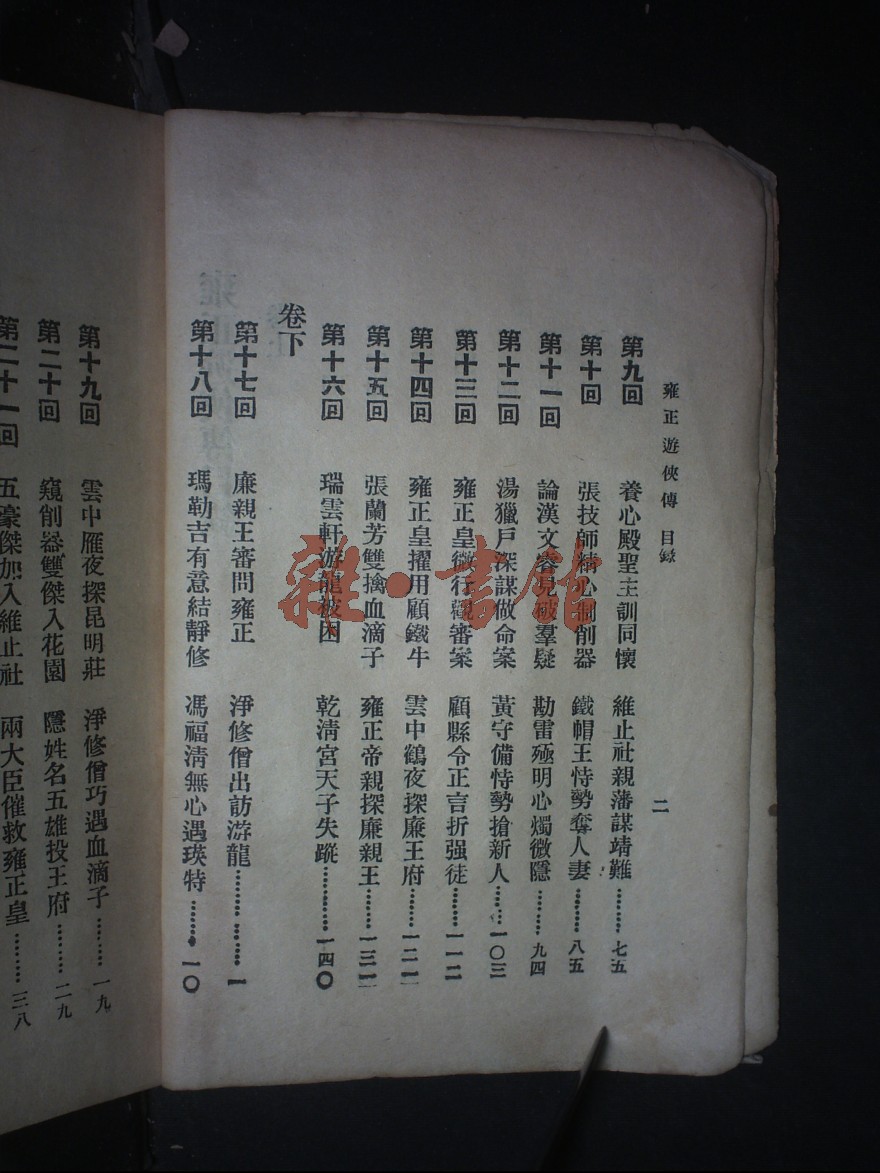 雍正遊俠傳 目錄
二
第九回 養心殿聖主訓同懷 維止社親藩謀靖難………七五
第十回 張技師精心制削器 鐵帽王恃勢奪人妻………八五
第十一回 論漢文睿見破羣疑 勘雷殛明心燭微隱………九四
第十二回 湯獵戶深謀做命案 黃守備恃勢搶新人………一〇三
第十三回 雍正皇微行觀審案 顧縣令正言折强徒………一一二
第十四回 雍正皇擢用顧鐵牛 雲中鶴夜探廉王府………一二一
第十五回 張蘭芳雙擒血滴子 雍正帝親探廉親王………一三一
第十六回 瑞雲軒游龍被困 乾淸宮天子失蹤…………一四〇
卷下
第十七回 廉親王審問雍正 淨修僧出訪游龍………一
第十八回 瑪勒吉有意結靜修 馮福清無心遇瑛特………一〇
第十九回 雲中雁夜探昆明莊 淨修僧巧遇血滴子………一九
第二十回 窺削器雙傑入花園 隱姓名五雄投王府………二九
第二十一回 五豪傑加入維止社 兩大臣催救雍正皇………三八
雜·書館